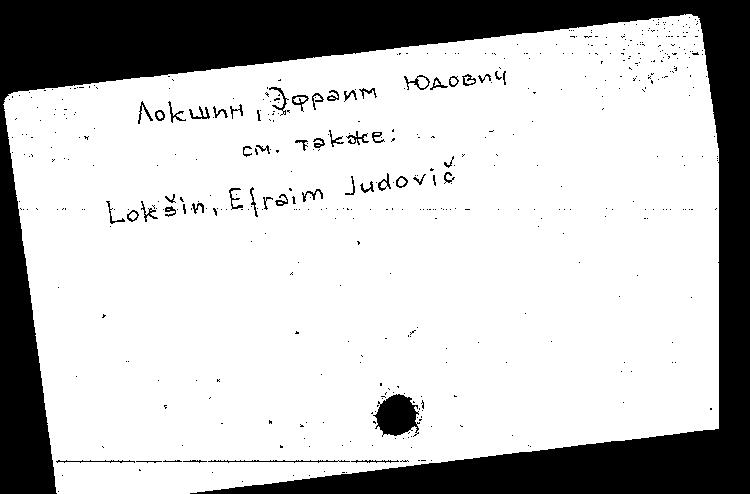 Локшин, Эфраим Юдович
см. также:
Lokšin, Efraim Judovič